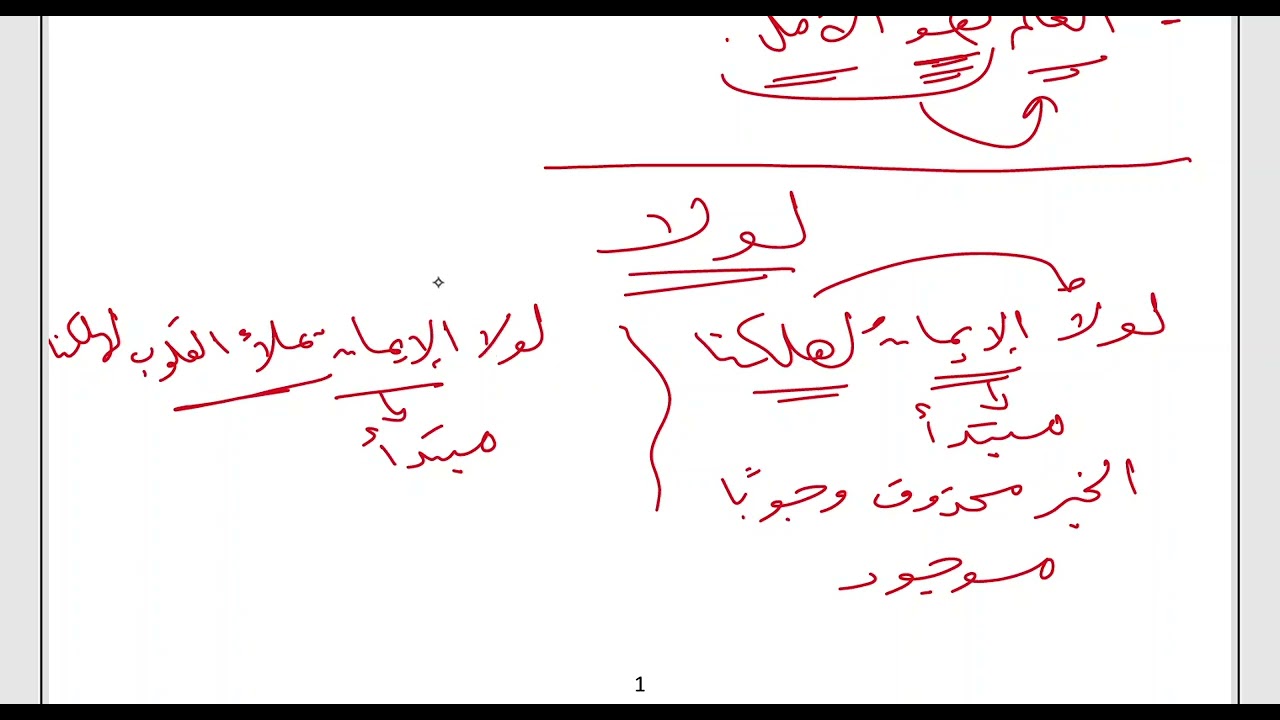 - العالم لهو الأمل .
لولا
لولا الإيمانُ لهلكنا
لولا الإيمان تملأ القلوب لهلكنا
مبتدأ
مبتدأ
الخبر محذوف وجوبًا
موجود
1